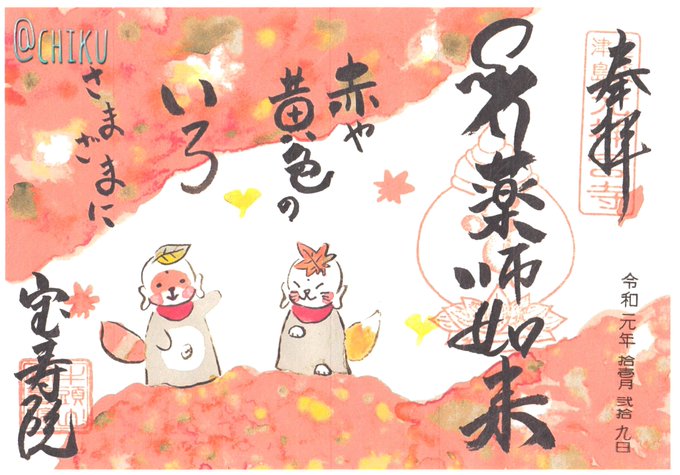 奉拝
薬師如来
赤や
黄色の
いろ
さまざまに
宝寿院
令和元年 拾壱月 弐拾九日
@CHIKU